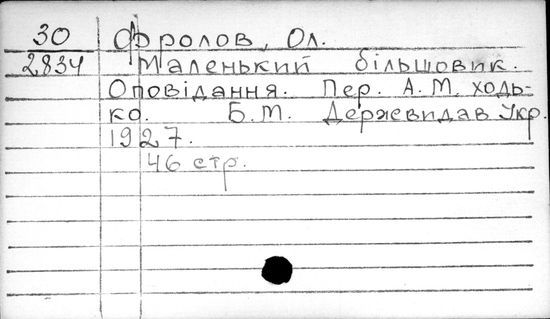 30 Фролов, Ол.
2834 Маленький більшовик.
Оповідання. Пер. А.М. Ходь-
ко. Б.М. Держвидав Укр.
1927.
46 стр.